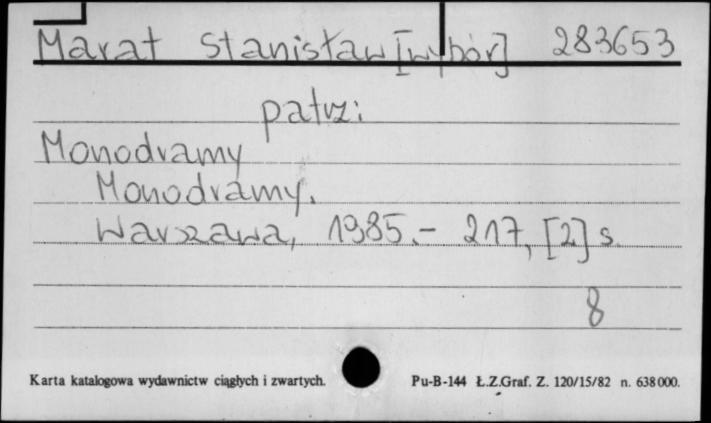 Marat Stanisław [wybór] 283653
patrz:
Monodramy
Monodramy.
Warszawa, 1985.- 217, [2] s.
8
Karta katalogowa wydawnictw ciągłych i zwartych. Pu-B-144 Ł.Z.Graf. Z. 120/15/82 n. 638000.